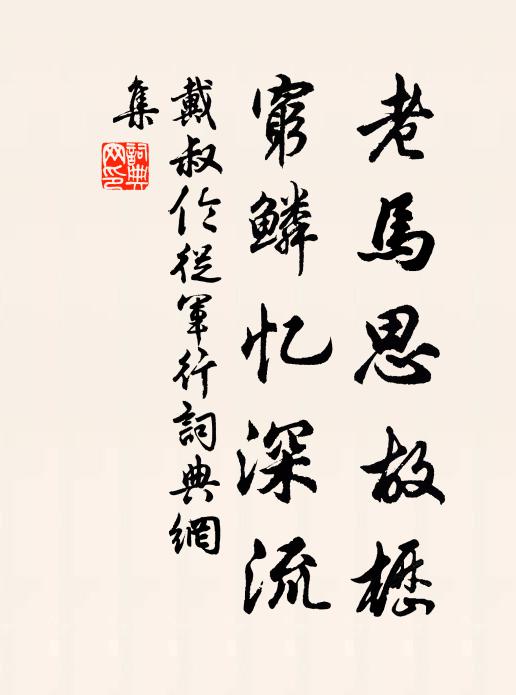 老馬思故櫪
窮鱗忆深流
戴叔伦從軍行詞典網
集
詞典
网印